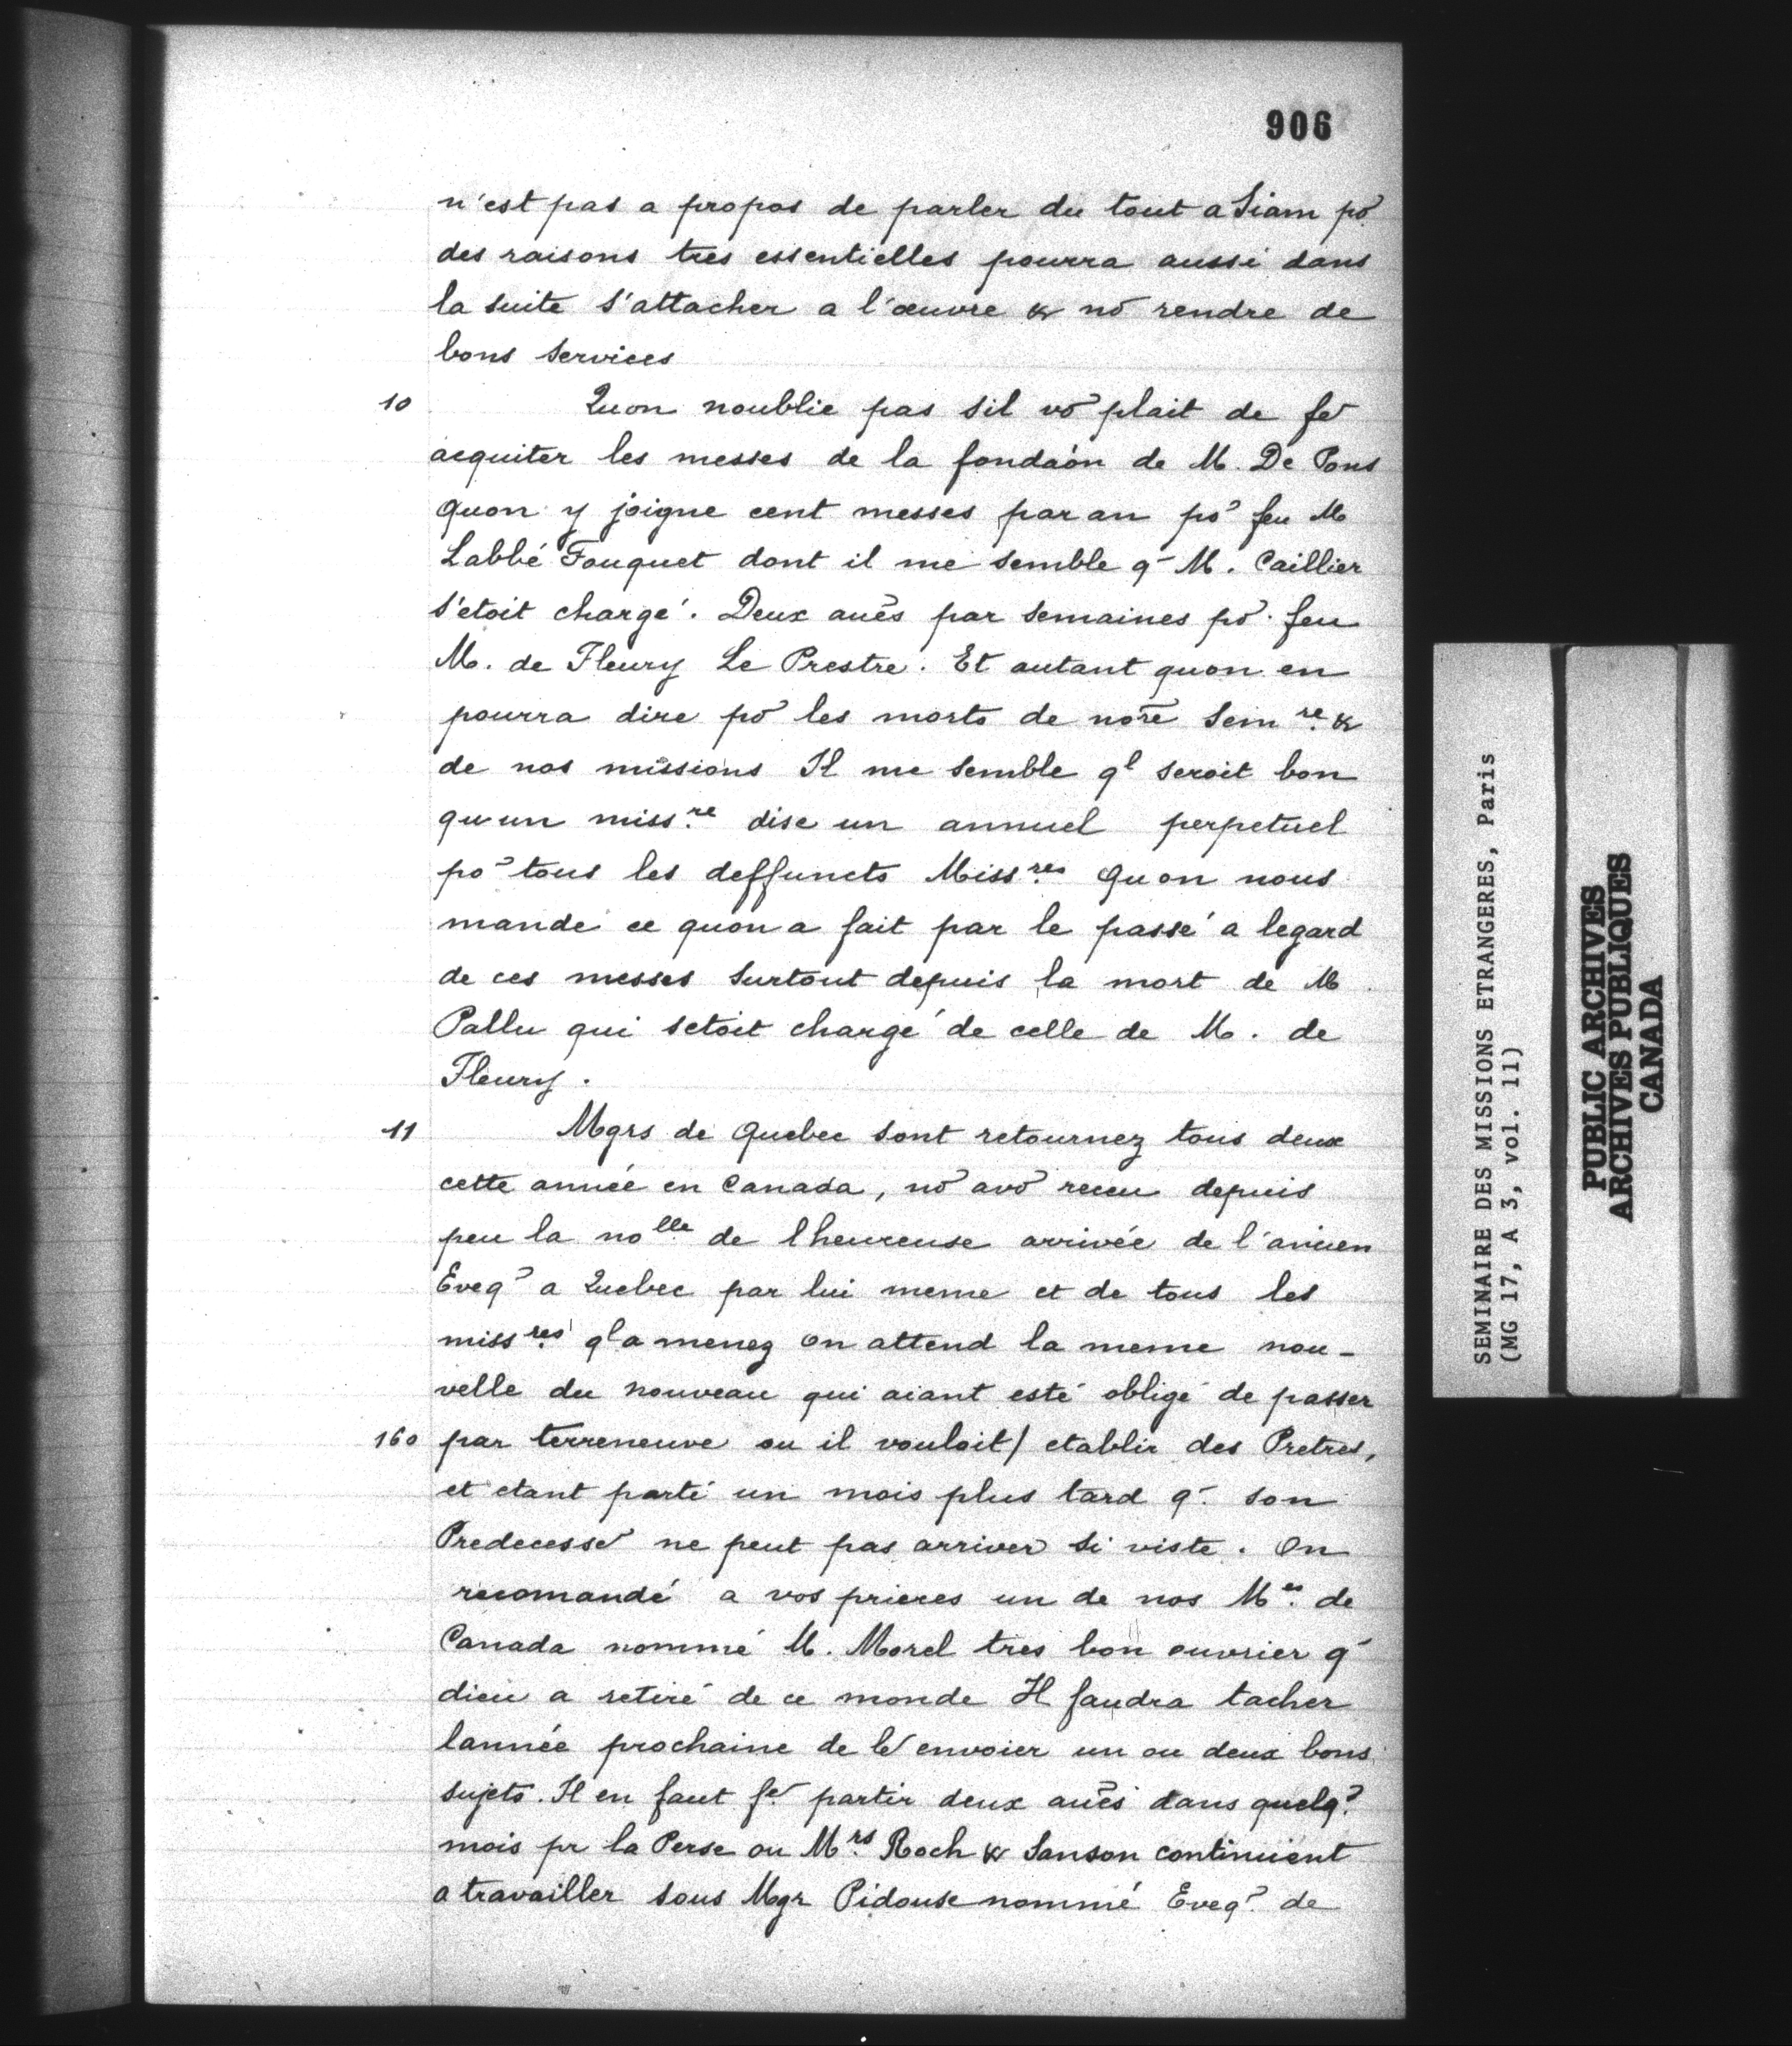 906
n'est pas a propos de parler du tout a Siam põ
des raisons tres essentielles pourra aussi dans
la suite s'attacher a l'œuvre & nõ rendre de
bons services
10 Quon noublie pas sil võ plait de fe^r
acquiter les messes de la fondaõn de M. De Pons
quon y joigne cent messes par an põ feu M
Labbé Fouquet dont il me semble q̃ M. Caillier
s'etoit chargé. Deux auẽs par semaines põ feu
M. de Fleury Le Prestre. Et autant quon en
pourra dire põ les morts de nõre Sem.^re &
de nos missions Il me semble q^l seroit bon
quun miss.^re dise un annuel perpetuel
põ tous les deffuncts Miss.^res Quon nous
mande ce quon a fait par le passé a legard
de ces messes surtout depuis la mort de M
Pallu qui setoit chargé de celle de M. de
Fleury.
11 Mgrs de Quebec sont retournez tous deux
cette année en Canada, nõ avõ receu depuis
peu la no^lle de lheureuse arrivée de l'ancien
Eveq̃ a Quebec par lui meme et de tous les
miss.^res q^l a menez on attend la meme nou-
velle du nouveau qui aiant esté obligé de passer
160 par terreneuve ou il vouloit/ etablir des Pretres,
et etant parti un mois plus tard q̃ son
Predecess^r ne peut pas arriver si viste. On
recomandé a vos prieres un de nos M.^es de
Canada nommé M. Morel tres bon ouvrier q̃
dieu a retiré de ce monde Il faudra tacher
lannée prochaine de le^r envoier un ou deux bons
sujets. Il en faut fe^r partir deux auẽs dans quelq̃
mois pr la Perse ou M.^rs Roch & Sanson continuent
a travailler sous Mgr Pidouse nommé Eveq̃ de
SEMINAIRE DES MISSIONS ETRANGERES, Paris
(MG 17, A 3, vol. 11)
PUBLIC ARCHIVES
ARCHIVES PUBLIQUES
CANADA